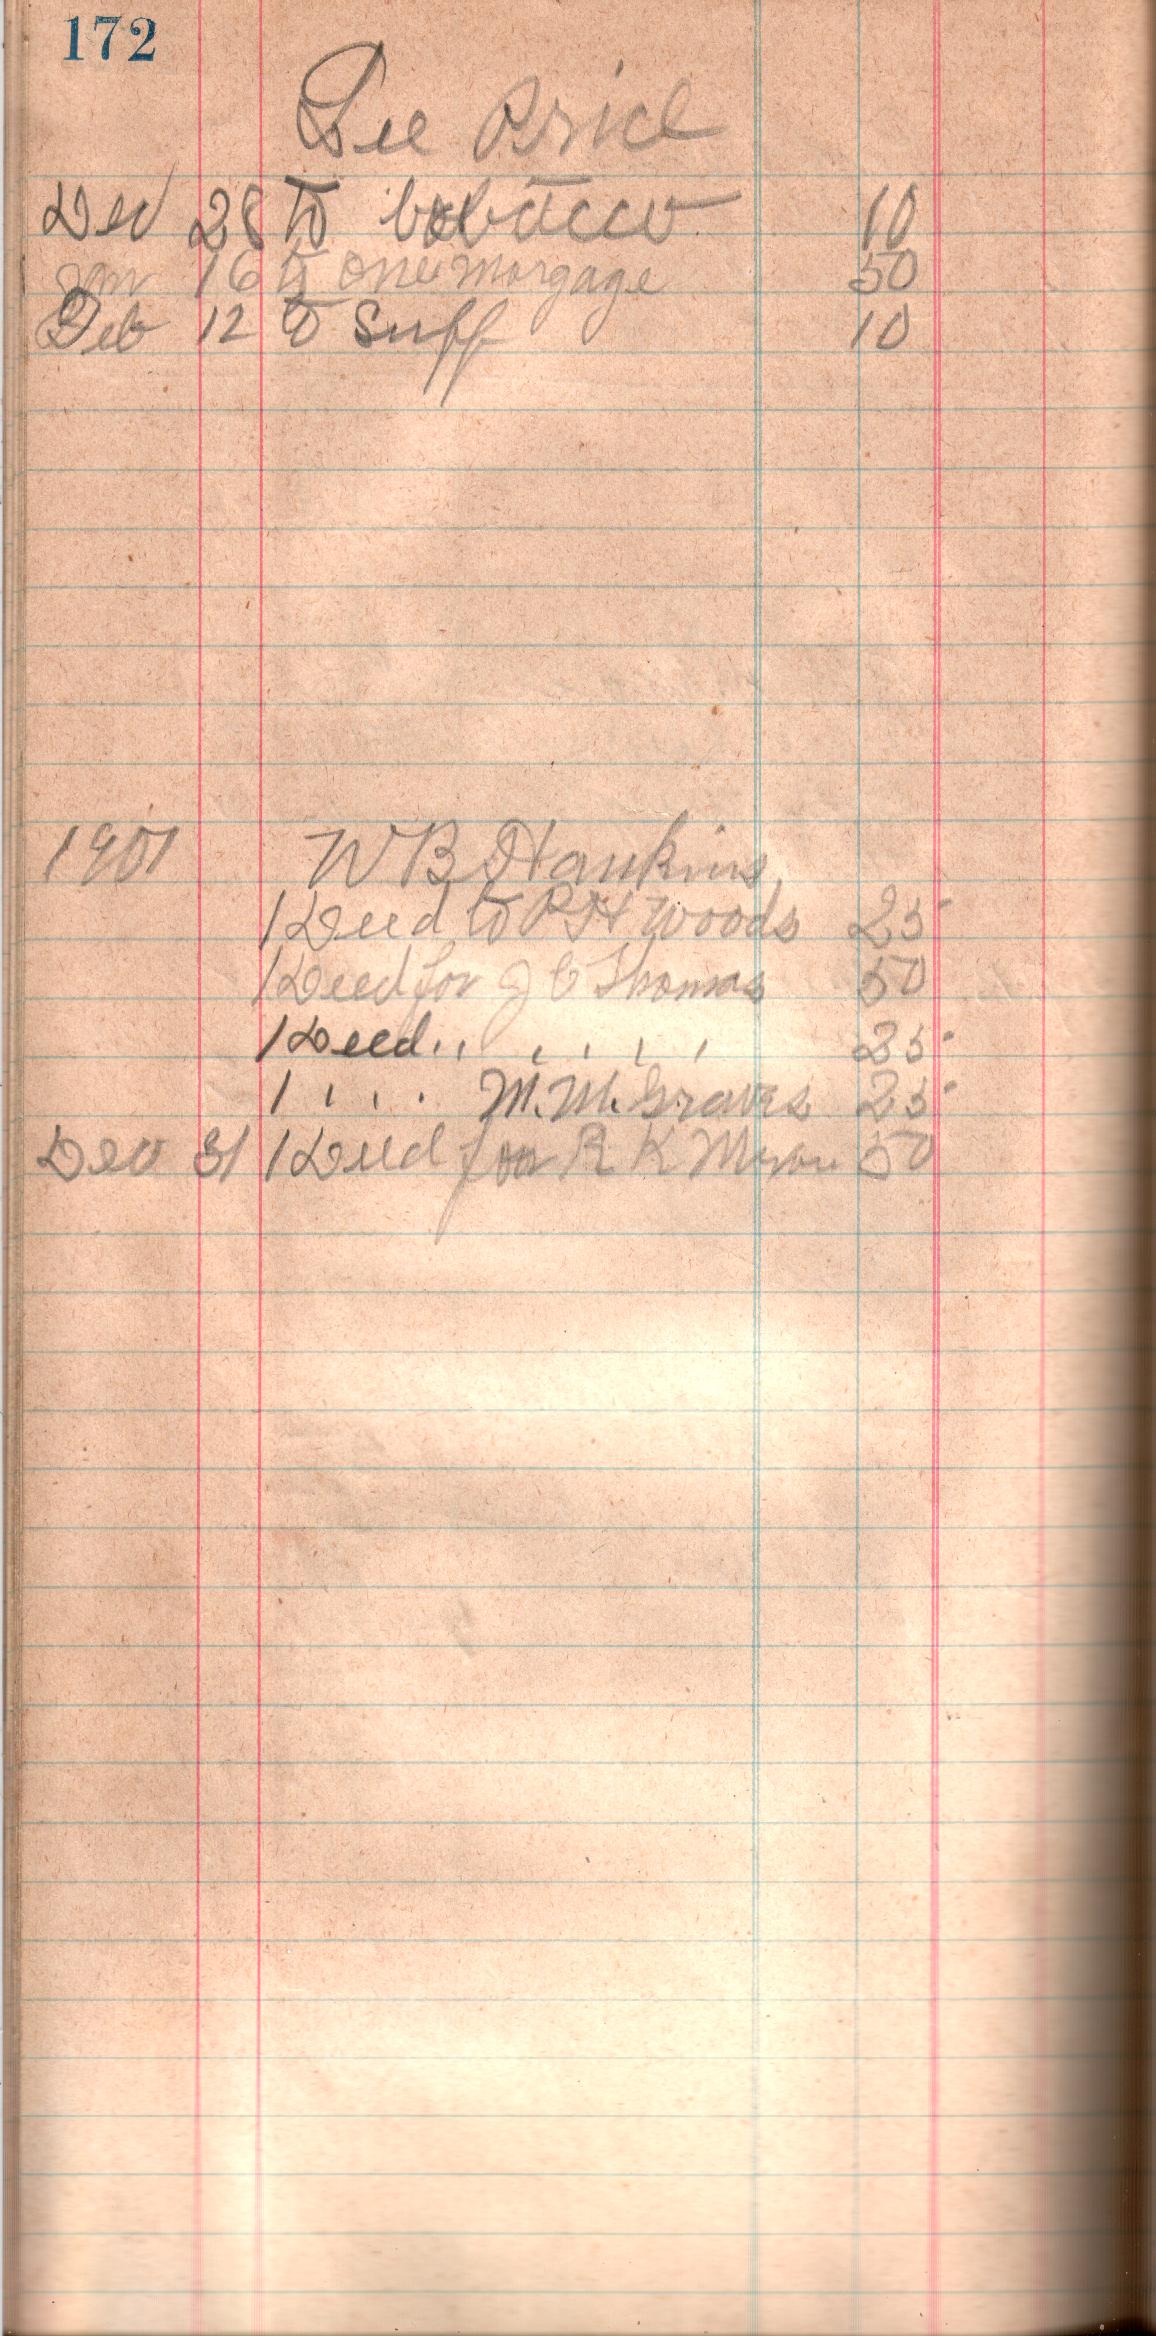 172
Lee Price
Dec 28 to tobacco 10
Jan 16 to one morgage 50
Feb 12 to Snff 10
1901 W B Hankins
1 Deed to P H Woods 25
1 Deed for J C Thomas 50
1 Deed " " " " " 25
1 " " " M. M. Graves 25
Dec 31 1 Deed for R K 50